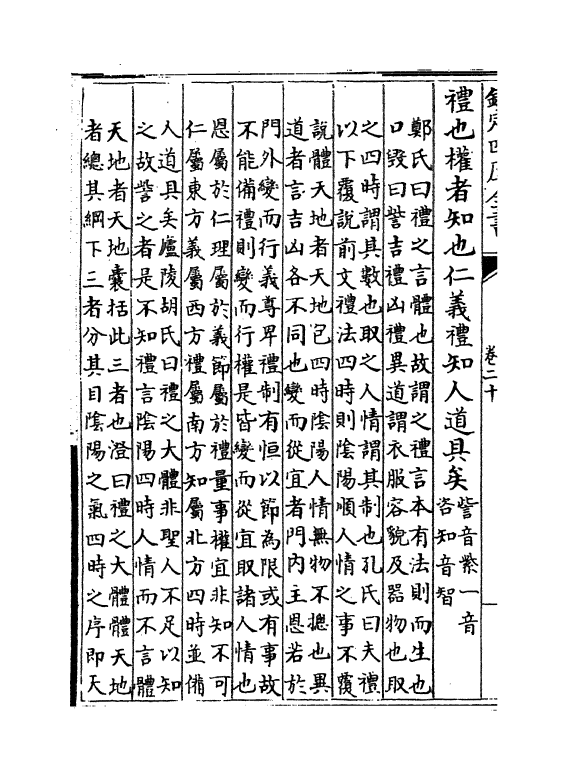 欽定四庫全書
卷二十
禮也權者知也仁義禮知人道具矣訾音紫一音
咨知音智
鄭氏曰禮之言體也故謂之禮言本有法則而生也
口毁曰訾吉禮凶禮異道謂衣服容貌及器物也取
之四時謂其數也取之人情謂其制也孔氏曰夫禮
以下覆說前文禮法四時則陰陽順人情之事不覆
說體天地者天地包四時陰陽人情無物不揔也異
道者言吉凶各不同也變而從宜者門内主恩若於
門外變而行義尊卑禮制有恒以節為限或有事故
不能備禮則變而行權是皆變而從宜取諸人情也
恩屬於仁理屬於義節屬於禮量事權宜非知不可
仁屬東方義屬西方禮屬南方知屬北方四時並備
人道具矣廬陵胡氏曰禮之大體非聖人不足以知
之故訾之者是不知禮言陰陽四時人情而不言體
天地者天地囊括此三者也澄曰禮之大體體天地
者總其綱下三者分其目陰陽之氣四時之序即天